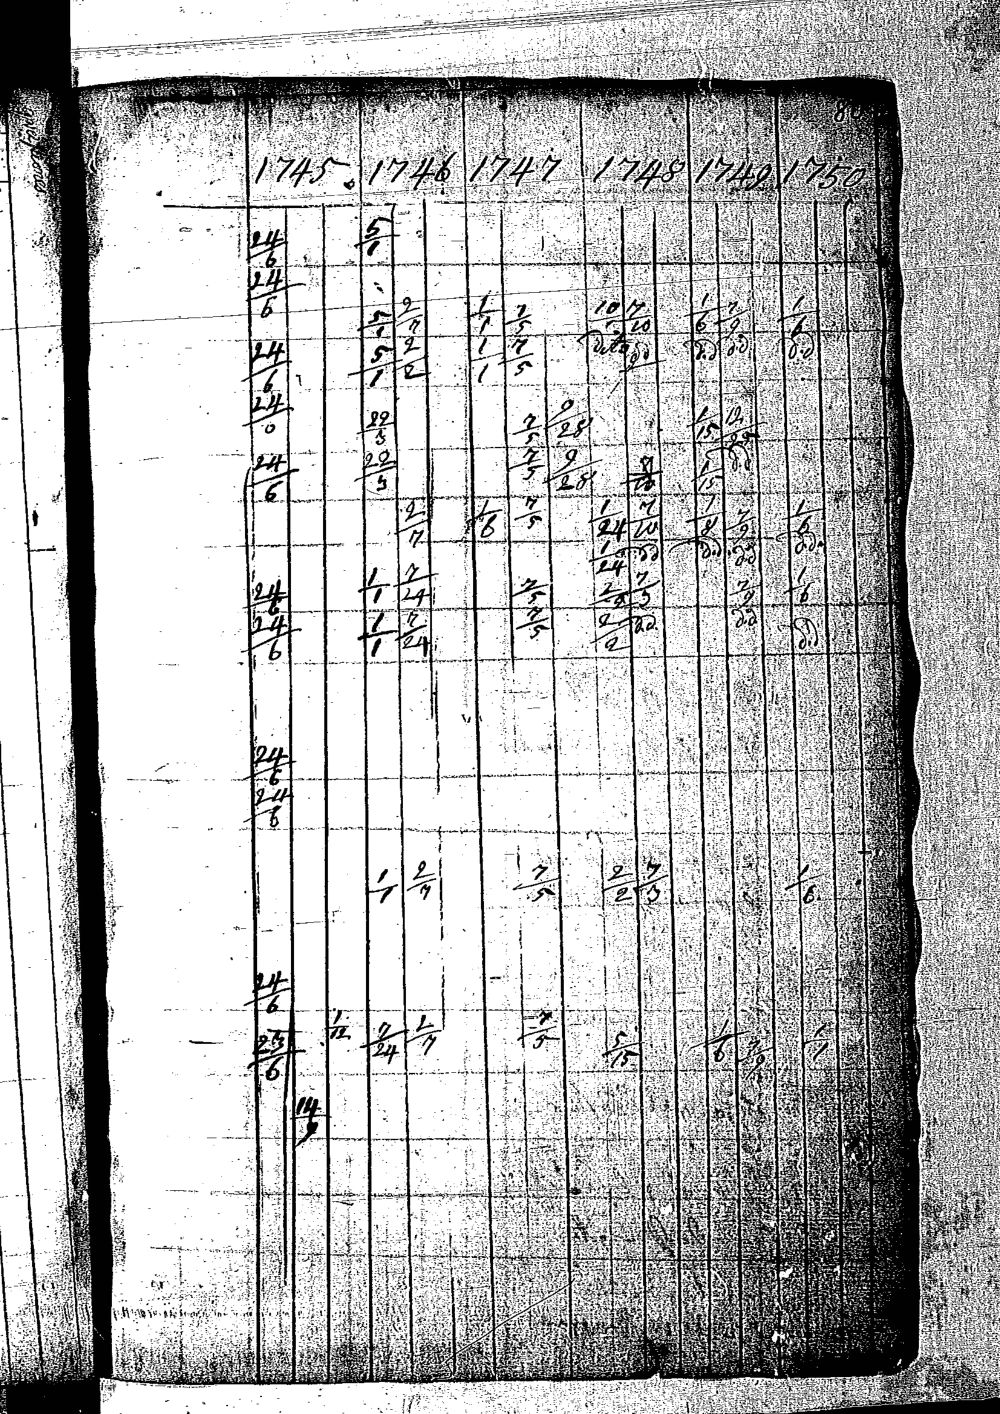 80
1745. 1746 1747 1748 1749 1750
24/6 5/1
24/6
5/1 2/7 1/1 7/5 10/1 7/10 1/6 7/9 1/6
24/6 5/1 2/2 1/1 7/5 dito dd dd dd dd
24/0 22/3 7/5 9/28 1/15 12/25
24/6 22/3 7/5 9/28 7/10 1/15 dd
2/7 1/6 7/5 1/24 7/10 1/8 7/9 1/6
1/24 dd dd dd dd.
24/6 1/1 7/24 7/5 2/2 7/3 7/9 1/6
24/6 1/1 7/24 7/5 2/2 dd. dd dd
24/6
24/6
1/1 2/7 7/5 2/2 7/3 1/6.
24/6
23/6 1/12 7/24 2/7 7/5 5/15 1/6 1/1
14/9